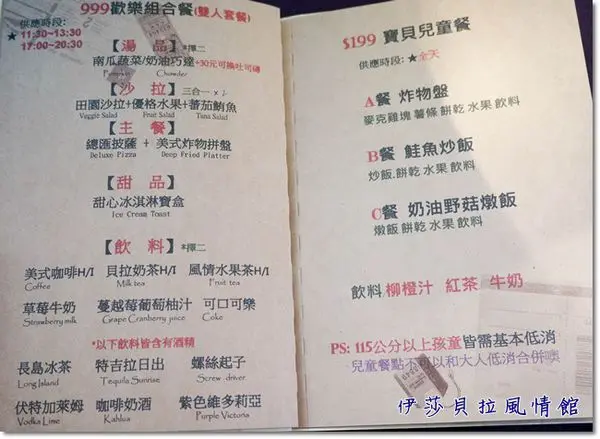 999歡樂組合餐(雙人套餐)
供應時段:
★11:30~13:30
17:00~20:30
【湯 品】*擇二
南瓜蔬菜/奶油巧達+30元可換吐司磚
Pumpkin Chowder
【沙 拉】三合一 x 2
田園沙拉+優格水果+蕃茄鮪魚
Veggie Salad Fruit Salad Tuna Salad
【主 餐】
總匯披薩 + 美式炸物拼盤
Deluxe Pizza Deep Fried Platter
【甜 品】
甜心冰淇淋寶盒
Ice Cream Toast
【飲 料】*擇二
美式咖啡H/I 貝拉奶茶H/I 風情水果茶H/I
Coffee Milk tea Fruit tea
草莓牛奶 蔓越莓葡萄柚汁 可口可樂
Strawberry milk Grape Cranberry juice Coke
*以下飲料皆含有酒精
長島冰茶 特吉拉日出 螺絲起子
Long Island Tequila Sunrise Screw driver
伏特加萊姆 咖啡奶酒 紫色維多利亞
Vodka Lime Kahlua Purple Victoria
$199 寶貝兒童餐
供應時段: ★全天
A餐 炸物盤
麥克雞塊 薯條 餅乾 水果 飲料
B餐 鮭魚炒飯
炒飯.餅乾 水果 飲料
C餐 奶油野菇燉飯
燉飯 餅乾 水果 飲料
飲料 柳橙汁 紅茶 牛奶
PS: 115公分以上孩童 皆需基本低消
兒童餐點不可以和大人低消合併噢
伊莎貝拉風情館